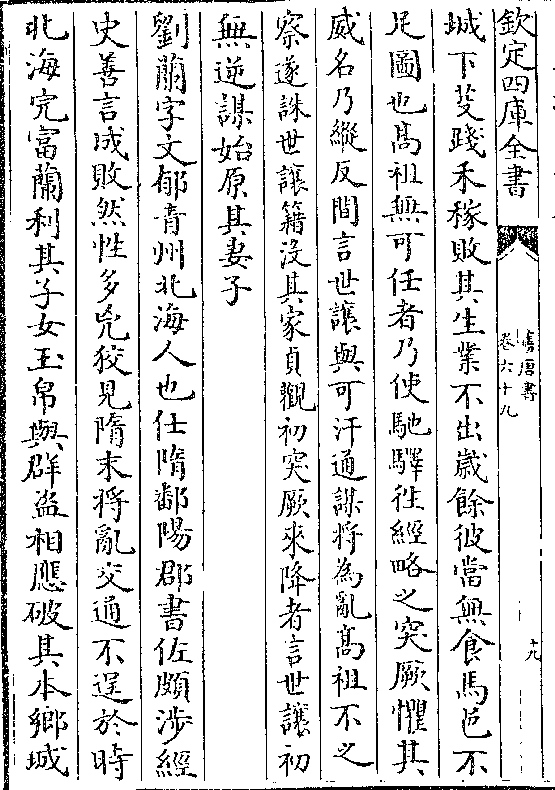 欽定四庫全書
舊唐書
卷六十九
十九
城下芟踐禾稼敗其生業不出嵗餘彼當無食馬邑不
足圖也髙祖無可任者乃使馳驛徃經略之突厥懼其
威名乃縱反間言世讓與可汗通謀將為亂髙祖不之
察遂誅世讓籍沒其家貞觀初突厥來降者言世讓初
無逆謀始原其妻子
劉蘭字文郁青州北海人也仕隋鄱陽郡書佐頗涉經
史善言成敗然性多兇狡見隋末將亂交通不逞於時
北海完富蘭利其子女玉帛與群盗相應破其本鄉城